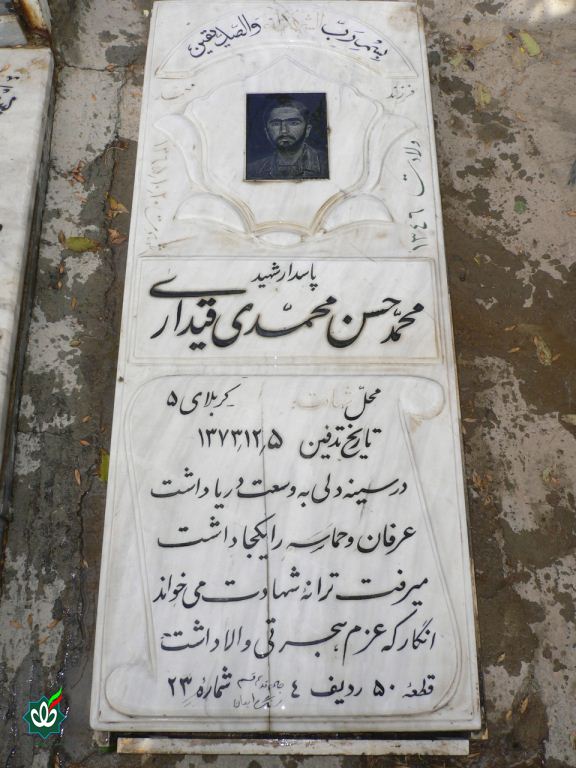 بسم رب الشهداء والصدیقین
فرزند
ولادت ۱۳۴۶
پاسدار شهید
محمد حسن محمدی قیداری
محل شهادت کربلای ۵
تاریخ تدفین ۱۳۷۳,۱۲,۵
در سینه دلی به وسعت دریا داشت
عرفان و حماسه را یکجا داشت
میرفت ترانهٔ شهادت می خواند
انگار که عزم هجرتی والا داشت
قطعه ۵۰ ردیف ۴ شمارهٔ ۲۳